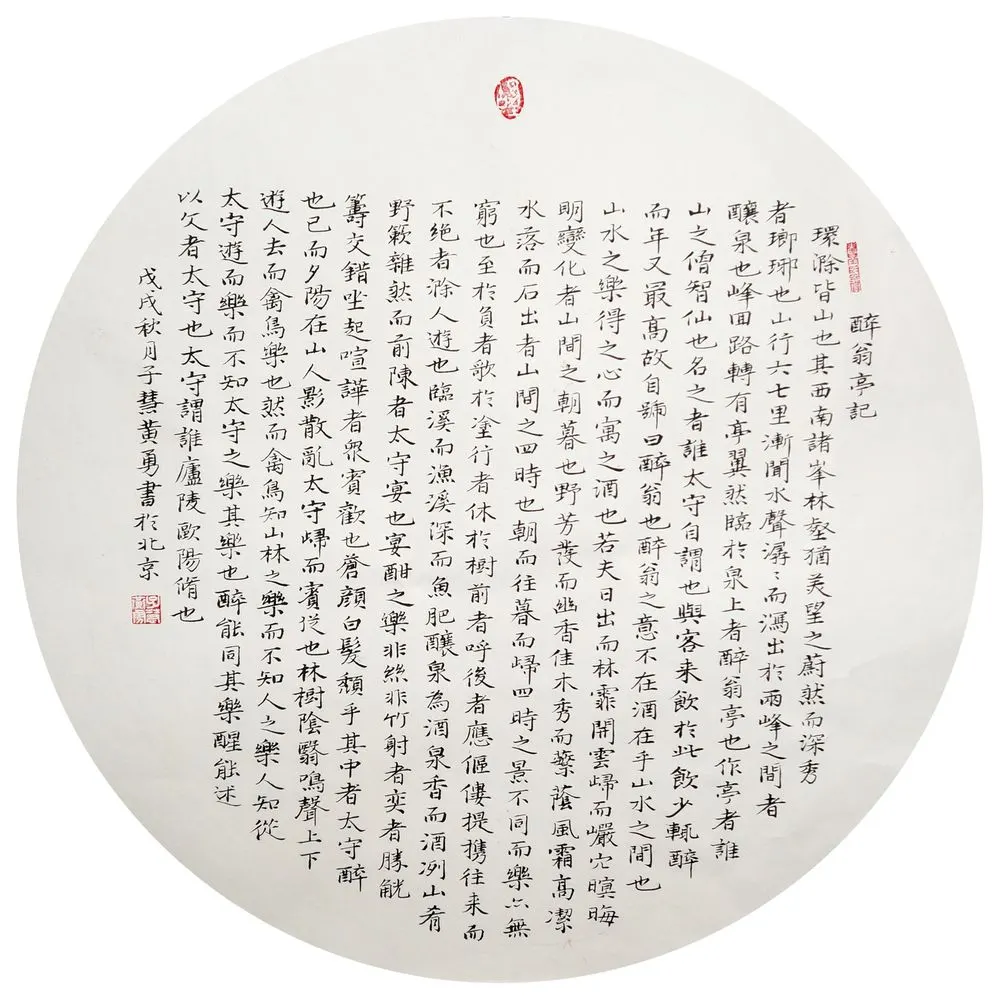 醉翁亭記
環滁皆山也其西南諸峯林壑猶美望之蔚然而深秀
者瑯琊也山行六七里漸聞水聲潺〻而瀉出於兩峰之間者
釀泉也峰回路轉有亭翼然臨於泉上者醉翁亭也作亭者誰
山之僧智仙也名之者誰太守自謂也與客来飲於此飲少輒醉
而年又最高故自號曰醉翁也醉翁之意不在酒在乎山水之間也
山水之樂得之心而寓之酒也若夫日出而林霏開雲歸而巖穴暝晦
明變化者山間之朝暮也野芳發而幽香佳木秀而蘩蔭風霜高潔
水落而石出者山間之四時也朝而往暮而歸四時之景不同而樂亦無
窮也至於負者歌於塗行者休於樹前者呼後者應傴僂提攜往来而
不绝者滁人遊也臨溪而漁溪深而魚肥釀泉為酒泉香而酒洌山肴
野簌雜然而前陳者太守宴也宴酣之樂非絲非竹射者奕者勝觥
籌交錯坐起喧譁者眾賓歡也蒼顏白髮頹乎其中者太守醉
也已而夕陽在山人影散亂太守歸而賓從也林樹陰翳鳴聲上下
遊人去而禽鳥樂也然而禽鳥知山林之樂而不知人之樂人知從
太守遊而樂而不知太守之樂其樂也醉能同其樂醒能述
以文者太守也太守謂誰廬陵歐陽脩也
戊戌秋月子慧黃勇書於北京